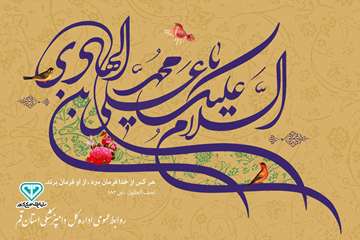 السلام علیک یا علی بن محمد الهادی
هر کس از خدا فرمان برد، از او فرمان برند.
تحف العقول، ص ۴۸۲
روابط عمومی اداره کل دامپزشکی استان قم